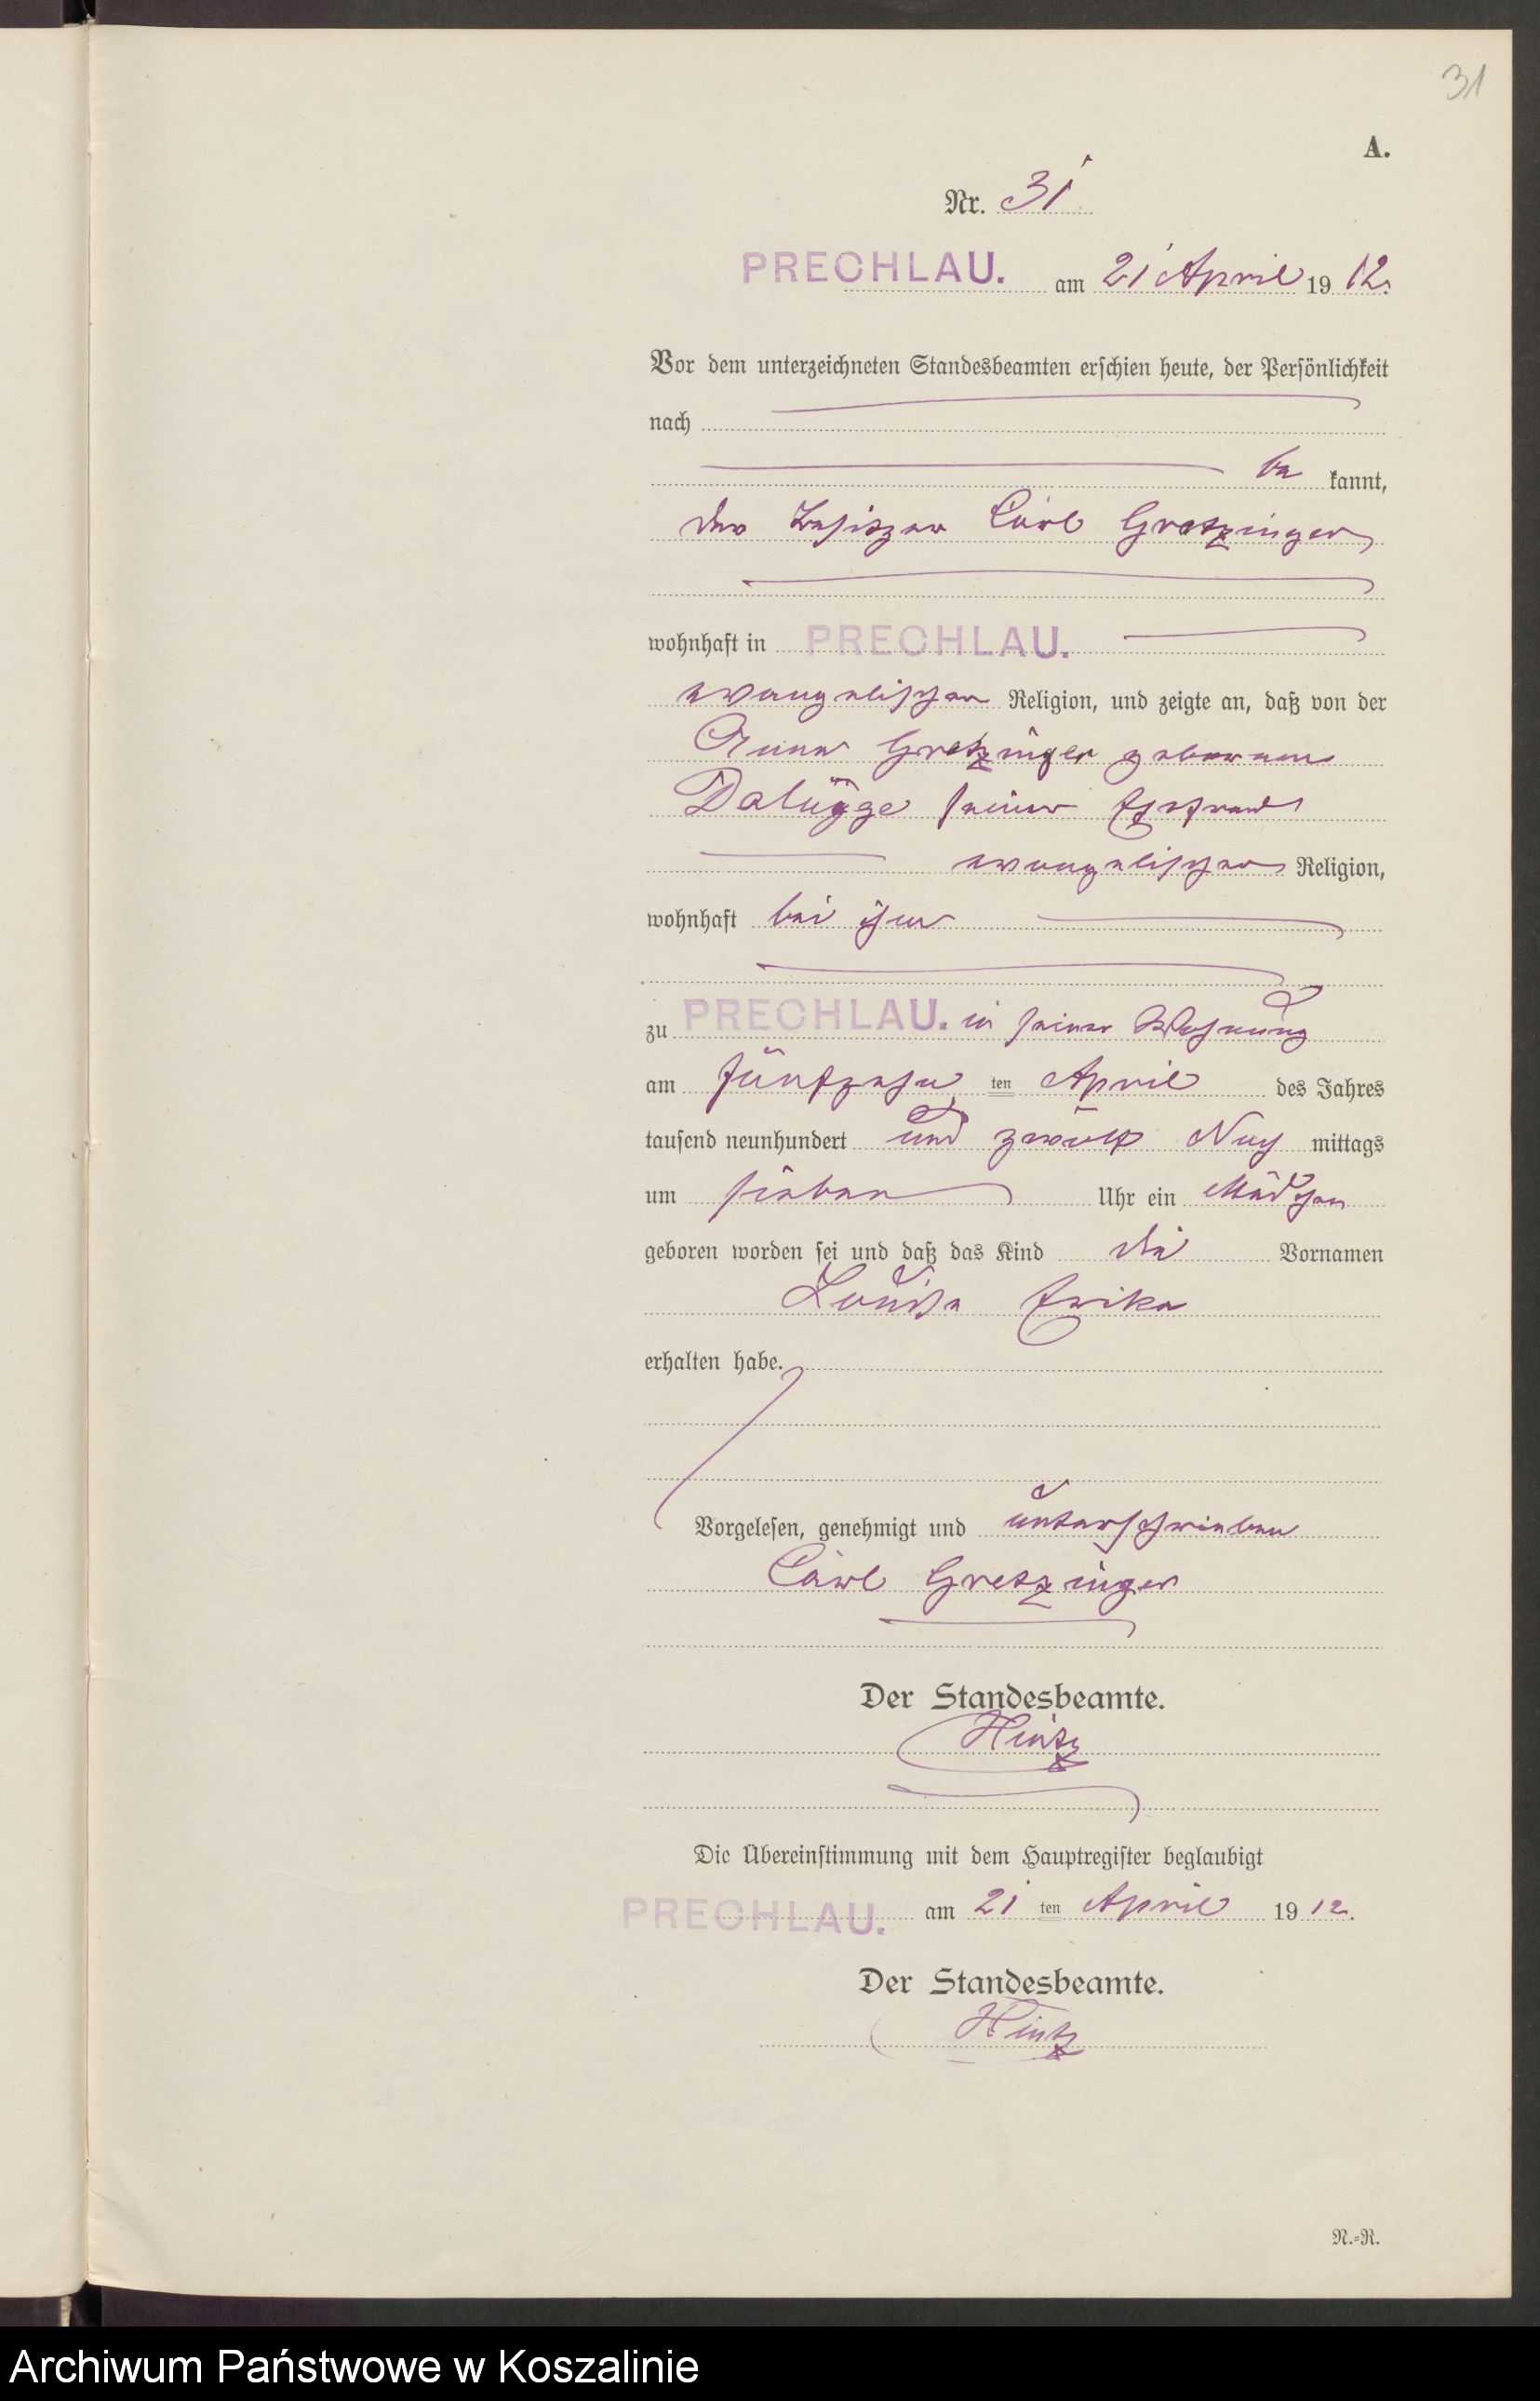 31
A.
Nr. 31
PRECHLAU. am 21 April 1912.
Vor dem unterzeichneten Standesbeamten erschien heute, der Persönlichkeit
nach
be kannt,
der Besitzer Carl Gretzinger
wohnhaft in PRECHLAU.
evangelischer Religion, und zeigte an, daß von der
Anna Gretzinger geborenen
Dalügge seiner Ehefrau
evangelischer Religion,
wohnhaft bei ihm
zu PRECHLAU. in seiner Wohnung
am fünfzehn ten April des Jahres
tausend neunhundert und zwölf Nach mittags
um sieben Uhr ein Mädchen
geboren worden sei und daß das Kind die Vornamen
Louise Erika
erhalten habe.
Vorgelesen, genehmigt und unterschrieben
Carl Gretzinger
Der Standesbeamte.
Hintz
Die Übereinstimmung mit dem Hauptregister beglaubigt
PRECHLAU. am 21 ten April 1912.
Der Standesbeamte.
Hintz
N.=R.
Archiwum Państwowe w Koszalinie